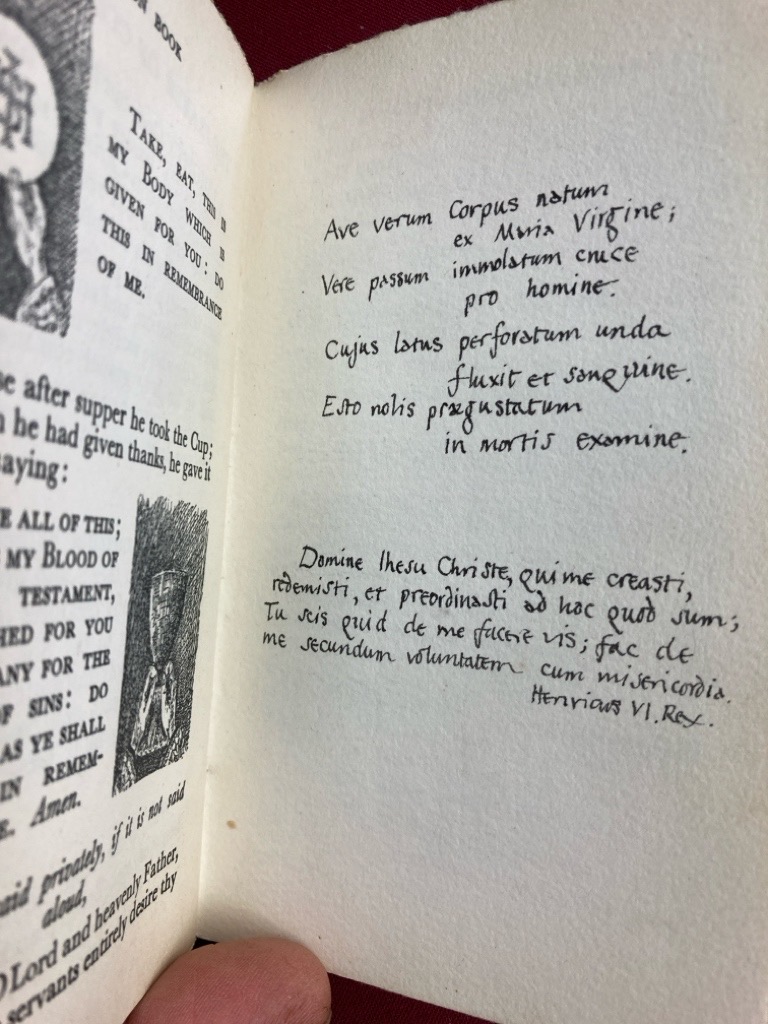 ON BOOK
TAKE, EAT, THIS IS
MY BODY WHICH IS
GIVEN FOR YOU: DO
THIS IN REMEMBRANCE
OF ME.
se after supper he took the Cup;
n he had given thanks, he gave it
saying:
E ALL OF THIS;
MY BLOOD OF
TESTAMENT,
HED FOR YOU
ANY FOR THE
F SINS: DO
AS YE SHALL
IN REMEM-
E. Amen.
aid privately, if it is not said
aloud,
O Lord and heavenly Father,
servants entirely desire thy
Ave verum Corpus natum
ex Maria Virgine;
Vere passum immolatum cruce
pro homine.
Cujus latus perforatum unda
fluxit et sanguine.
Esto nobis prægustatum
in mortis examine.
Domine Ihesu Christe, qui me creasti,
redemisti, et preordinasti ad hoc quod sum;
Tu scis quid de me facere vis; fac de
me secundum voluntatem cum misericordia.
Henricus VI. Rex.